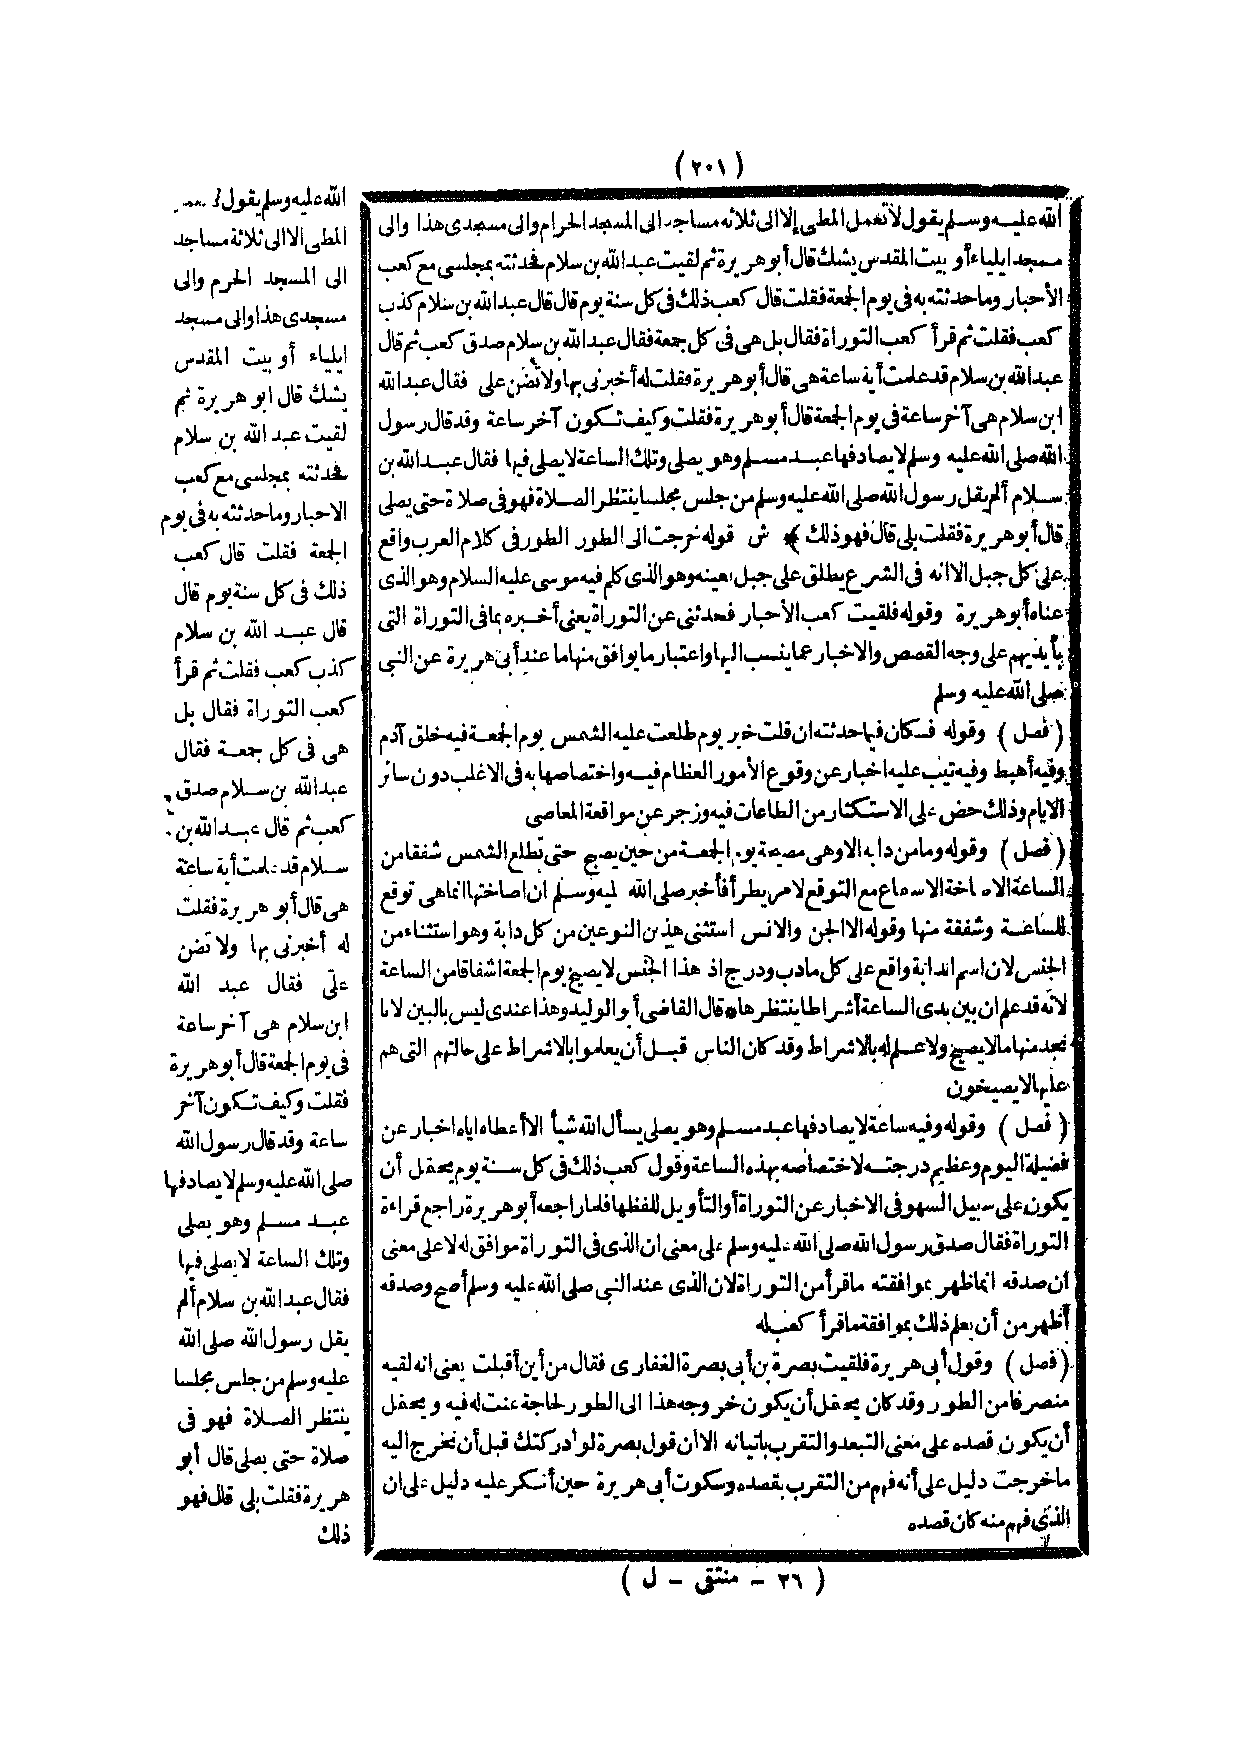 (٢٠١)
الله عليه وسلم يقول لا تعمل المطى إلا الى ثلاثة مساجد الى المسجد الحرام والى مسجدى هذا والى
مسجد ايلياء أو بيت المقدس يشك قال أبو هريرة ثم لقيت عبد الله بن سلام فحدثته بمجلسى مع كعب
الأحبار وما حدثته به فى يوم الجمعة فقلت قال كعب ذلك فى كل سنة يوم قال قال عبد الله بن سلام كذب
كعب فقلت ثم قرأ كعب التوراة فقال بل هى فى كل جمعة فقال عبد الله بن سلام صدق كعب ثم قال
عبد الله بن سلام قد علمت أية ساعة هى قال أبو هريرة فقلت له أخبرنى بها ولا تضن على فقال عبد الله
ابن سلام هى آخر ساعة فى يوم الجمعة قال أبو هريرة فقلت وكيف تكون آخر ساعة وقد قال رسول
الله صلى الله عليه وسلم لا يصادفها عبد مسلم وهو يصلى وتلك الساعة لا يصلى فيها فقال عبد الله بن
سلام ألم يقل رسول الله صلى الله عليه وسلم من جلس مجلسا ينتظر الصلاة فهو فى صلاة حتى يصلى
قال أبو هريرة فقلت بلى قال فهو ذلك ﴾ ش قوله خرجت الى الطور الطور فى كلام العرب واقع
على كل جبل الا انه فى الشرع يطلق على جبل بعينه وهو الذى كلم فيه موسى عليه السلام وهو الذى
عناه أبو هريرة وقوله فلقيت كعب الأحبار فحدثنى عن التوراة يعنى أخبره بما فى التوراة التى
بأيديهم على وجه القصص والاخبار عما ينسب اليها واعتبار ما يوافق منها ما عند أبى هريرة عن النبى
صلى الله عليه وسلم
(فصل) وقوله فكان فيما حدثته ان قلت خير يوم طلعت عليه الشمس يوم الجمعة فيه خلق آدم
وفيه أهبط وفيه تيب عليه اخبار عن وقوع الأمور العظام فيه واختصاصها به فى الاغلب دون سائر
الايام وذلك حض على الاستكثار من الطاعات فيه وزجر عن مواقعة المعاصى
(فصل) وقوله وما من دابة الا وهى مصيخة يوم الجمعة من حين يصبح حتى تطلع الشمس شفقا من
الساعة الاصاخة الاسماع مع التوقع لامر يطرأ فأخبر صلى الله عليه وسلم ان اصاختها انما هى توقع
للساعة وشفقة منها وقوله الا الجن والانس استثنى هذين النوعين من كل دابة وهو استثناء من
الجنس لان اسم الدابة واقع على كل ما دب ودرج اذ هذا الجنس لا يصيخ يوم الجمعة اشفاقا من الساعة
لانه قد علم ان بين يدى الساعة أشراطا ينتظرها * قال القاضى أبو الوليد وهذا عندى ليس بالبين لانا
نجد منها ما لا يصيخ ولا علم له بالاشراط وقد كان الناس قبل أن يعلموا بالاشراط على حالتهم التى هم
عليها لا يصيخون
(فصل) وقوله وفيه ساعة لا يصادفها عبد مسلم وهو يصلى يسأل الله شيأ الا أعطاه اياه اخبار عن
فضيلة اليوم وعظيم درجته لاختصاصه بهذه الساعة وقول كعب ذلك فى كل سنة يوم يحتمل أن
يكون على سبيل السهو فى الاخبار عن التوراة أو التأويل للفظها فلما راجعه أبو هريرة راجع قراءة
التوراة فقال صدق رسول الله صلى الله عليه وسلم على معنى ان الذى فى التوراة موافق له لا على معنى
ان صدقه انما ظهر بموافقته ما قرأ من التوراة لان الذى عند النبى صلى الله عليه وسلم أصح وصدقه
أظهر من أن يعلم ذلك بموافقة ما قرأ كعب له
(فصل) وقول أبى هريرة فلقيت بصرة بن أبى بصرة الغفارى فقال من أين أقبلت يعنى انه لقيه
منصرفا من الطور وقد كان يحتمل أن يكون خروجه هذا الى الطور لحاجة عنت له فيه ويحتمل
أن يكون قصده على معنى التبعد والتقرب باتيانه الا أن قول بصرة لو أدركتك قبل أن تخرج اليه
ما خرجت دليل على أنه فهم من التقرب بقصده وسكوت أبى هريرة حين أنكر عليه دليل على ان
الذى فهم منه كان قصده
الله عليه وسلم يقول
المطى الا الى ثلاثة مساجد
الى المسجد الحرم والى
مسجدى هذا والى مسجد
ايلياء أو بيت المقدس
يشك قال ابو هريرة ثم
لقيت عبد الله بن سلام
فحدثته بمجلسى مع كعب
الاحبار وما حدثته به فى يوم
الجمعة فقلت قال كعب
ذلك فى كل سنة يوم قال
قال عبد الله بن سلام
كذب كعب فقلت ثم قرأ
كعب التوراة فقال بل
هى فى كل جمعة فقال
عبد الله بن سلام صدق
كعب ثم قال عبد الله بن
سلام قد علمت أية ساعة
هى قال أبو هريرة فقلت
له أخبرنى بها ولا تضن
على فقال عبد الله
ابن سلام هى آخر ساعة
فى يوم الجمعة قال أبو هريرة
فقلت وكيف تكون آخر
ساعة وقد قال رسول الله
صلى الله عليه وسلم لا يصادفها
عبد مسلم وهو يصلى
وتلك الساعة لا يصلى فيها
فقال عبد الله بن سلام ألم
يقل رسول الله صلى الله
عليه وسلم من جلس مجلسا
ينتظر الصلاة فهو فى
صلاة حتى يصلى قال أبو
هريرة فقلت بلى قال فهو
ذلك
(٢٦ - منتقى - ل)